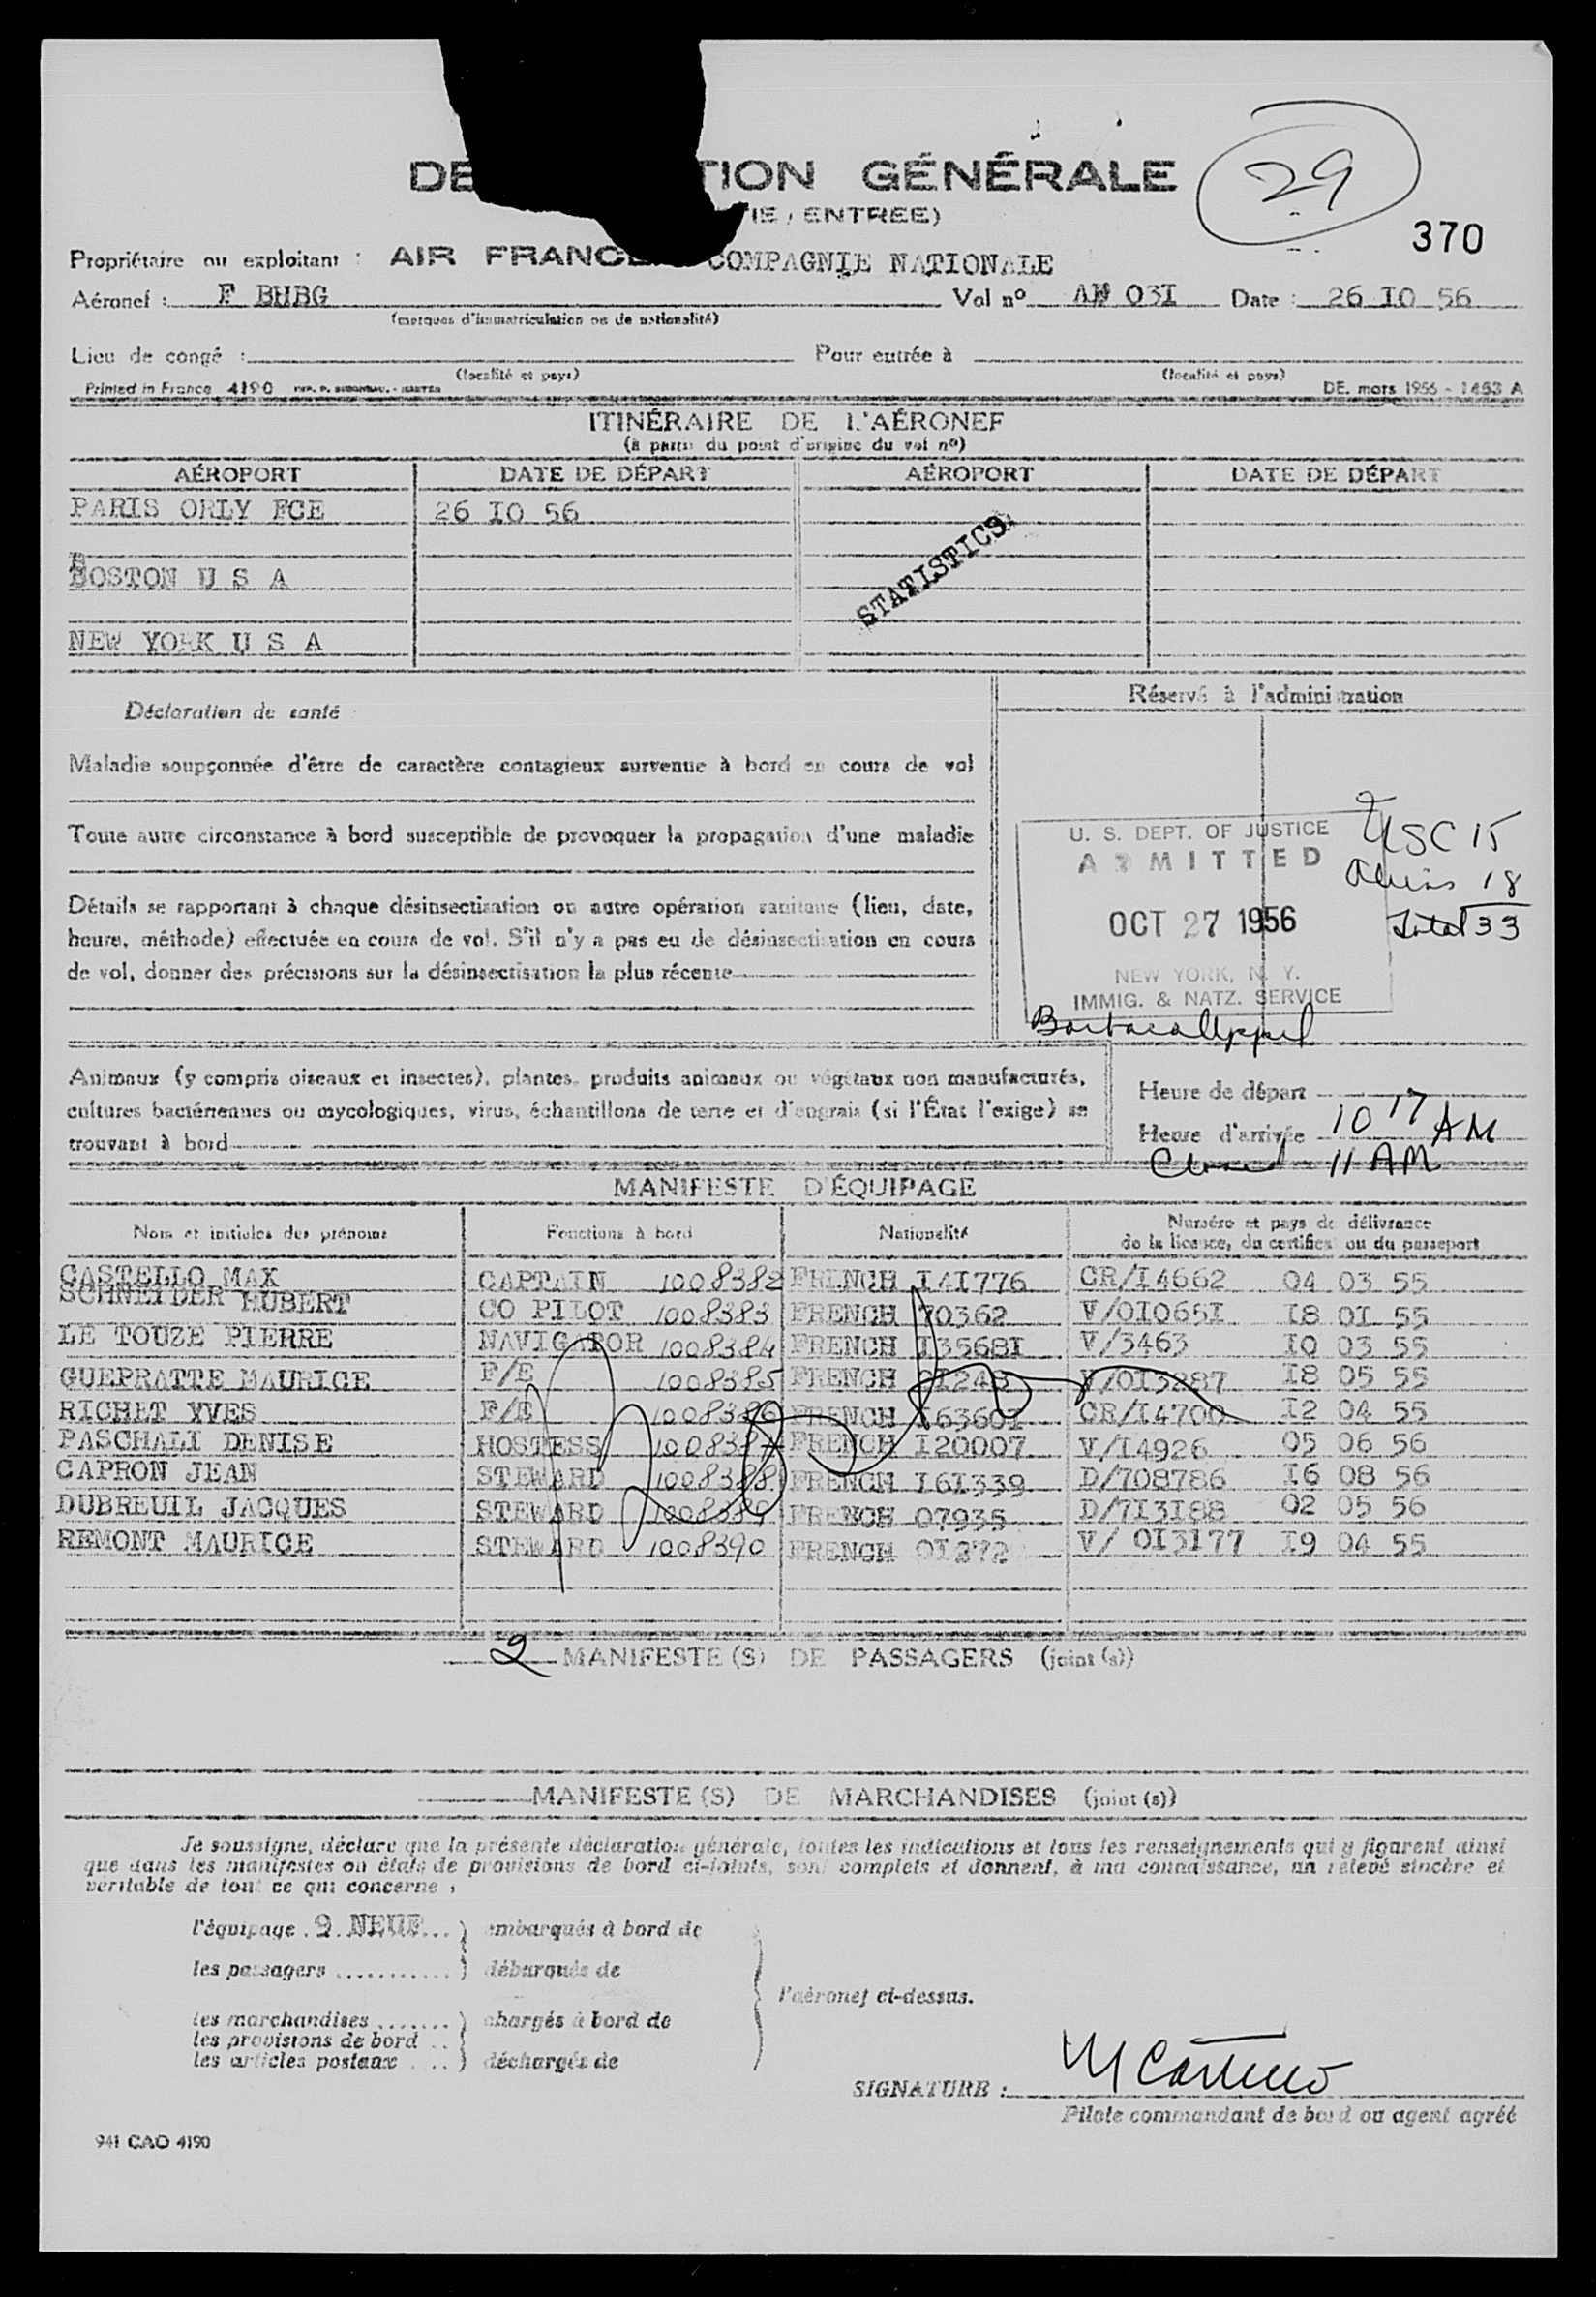 29
DE TION GÉNÉRALE
TIE, ENTREE)
370
Propriétaire ou exploitant : AIR FRANCE COMPAGNIE NATIONALE
Aéronef : F BHBG Vol nº AN 031 Date : 26 IO 56
(marques d'immatriculation ou de nationalité)
Lieu de congé : Pour entrée à
(localité et pays) (localité et pays)
Printed in France 4190 DE. mars 1956 - 1453 A
ITINÉRAIRE DE L'AÉRONEF
(à partir du point d'origine du vol nº)
AÉROPORT DATE DE DÉPART AÉROPORT DATE DE DÉPART
PARIS ORLY FCE 26 IO 56
STATISTICS
BOSTON U S A
NEW YORK U S A
Réservé à l'administration
Déclaration de santé
Maladie soupçonnée d'être de caractère contagieux survenue à bord en cours de vol
Toute autre circonstance à bord susceptible de provoquer la propagation d'une maladie
Détails se rapportant à chaque désinsectisation ou autre opération sanitaire (lieu, date,
heure, méthode) effectuée en cours de vol. S'il n'y a pas eu de désinsectisation en cours
de vol, donner des précisions sur la désinsectisation la plus récente
U. S. DEPT. OF JUSTICE
ADMITTED
OCT 27 1956
NEW YORK, N. Y.
IMMIG. & NATZ. SERVICE
USC 15
Aliens 18
Total 33
Barbara Uppel
Animaux (y compris oiseaux et insectes), plantes, produits animaux ou végétaux non manufacturés,
cultures bactériennes ou mycologiques, virus, échantillons de terre et d'engrais (si l'État l'exige) se
trouvant à bord
Heure de départ
Heure d'arrivée 10 17 AM
Closed 11 AM
MANIFESTE D'ÉQUIPAGE
Nom et initiales des prénoms Fonctions à bord Nationalité Numéro et pays de délivrance
de la licence, du certificat ou du passeport
CASTELLO MAX CAPTAIN 1008382 FRENCH I4I776 CR/I4662 04 03 55
SCHNEIDER HUBERT CO PILOT 1008383 FRENCH 70362 V/OI065I I8 0I 55
LE TOUZE PIERRE NAVIGATOR 1008384 FRENCH I3568I V/3463 IO 03 55
GUEPRATTE MAURICE F/E 1008385 FRENCH 0I248 V/OI3287 I8 05 55
RICHET YVES F/E 1008386 FRENCH I6360I CR/I4700 I2 04 55
PASCHALI DENISE HOSTESS 1008387 FRENCH I20007 V/I4926 05 06 56
CAPRON JEAN STEWARD 1008388 FRENCH I6I339 D/708786 I6 08 56
DUBREUIL JACQUES STEWARD 1008389 FRENCH 07935 D/7I3I88 02 05 56
REMONT MAURICE STEWARD 1008390 FRENCH 0I372 V/ OI3I77 I9 04 55
2 MANIFESTE (S) DE PASSAGERS (joint (s))
MANIFESTE (S) DE MARCHANDISES (joint (s))
Je soussigne, déclare que la présente déclaration générale, toutes les indications et tous les renseignements qui y figurent ainsi
que dans les manifestes ou états de provisions de bord ci-joints, sont complets et donnent, à ma connaissance, un relevé sincère et
véritable de tout ce qui concerne :
l'équipage . 9 . NEUF ... embarqués à bord de
les passagers ........... débarqués de
l'aéronef ci-dessus.
les marchandises ....... chargés à bord de
les provisions de bord ..
les articles postaux .... déchargés de
SIGNATURE : M Castello
Pilote commandant de bord ou agent agréé
941 CAO 4190